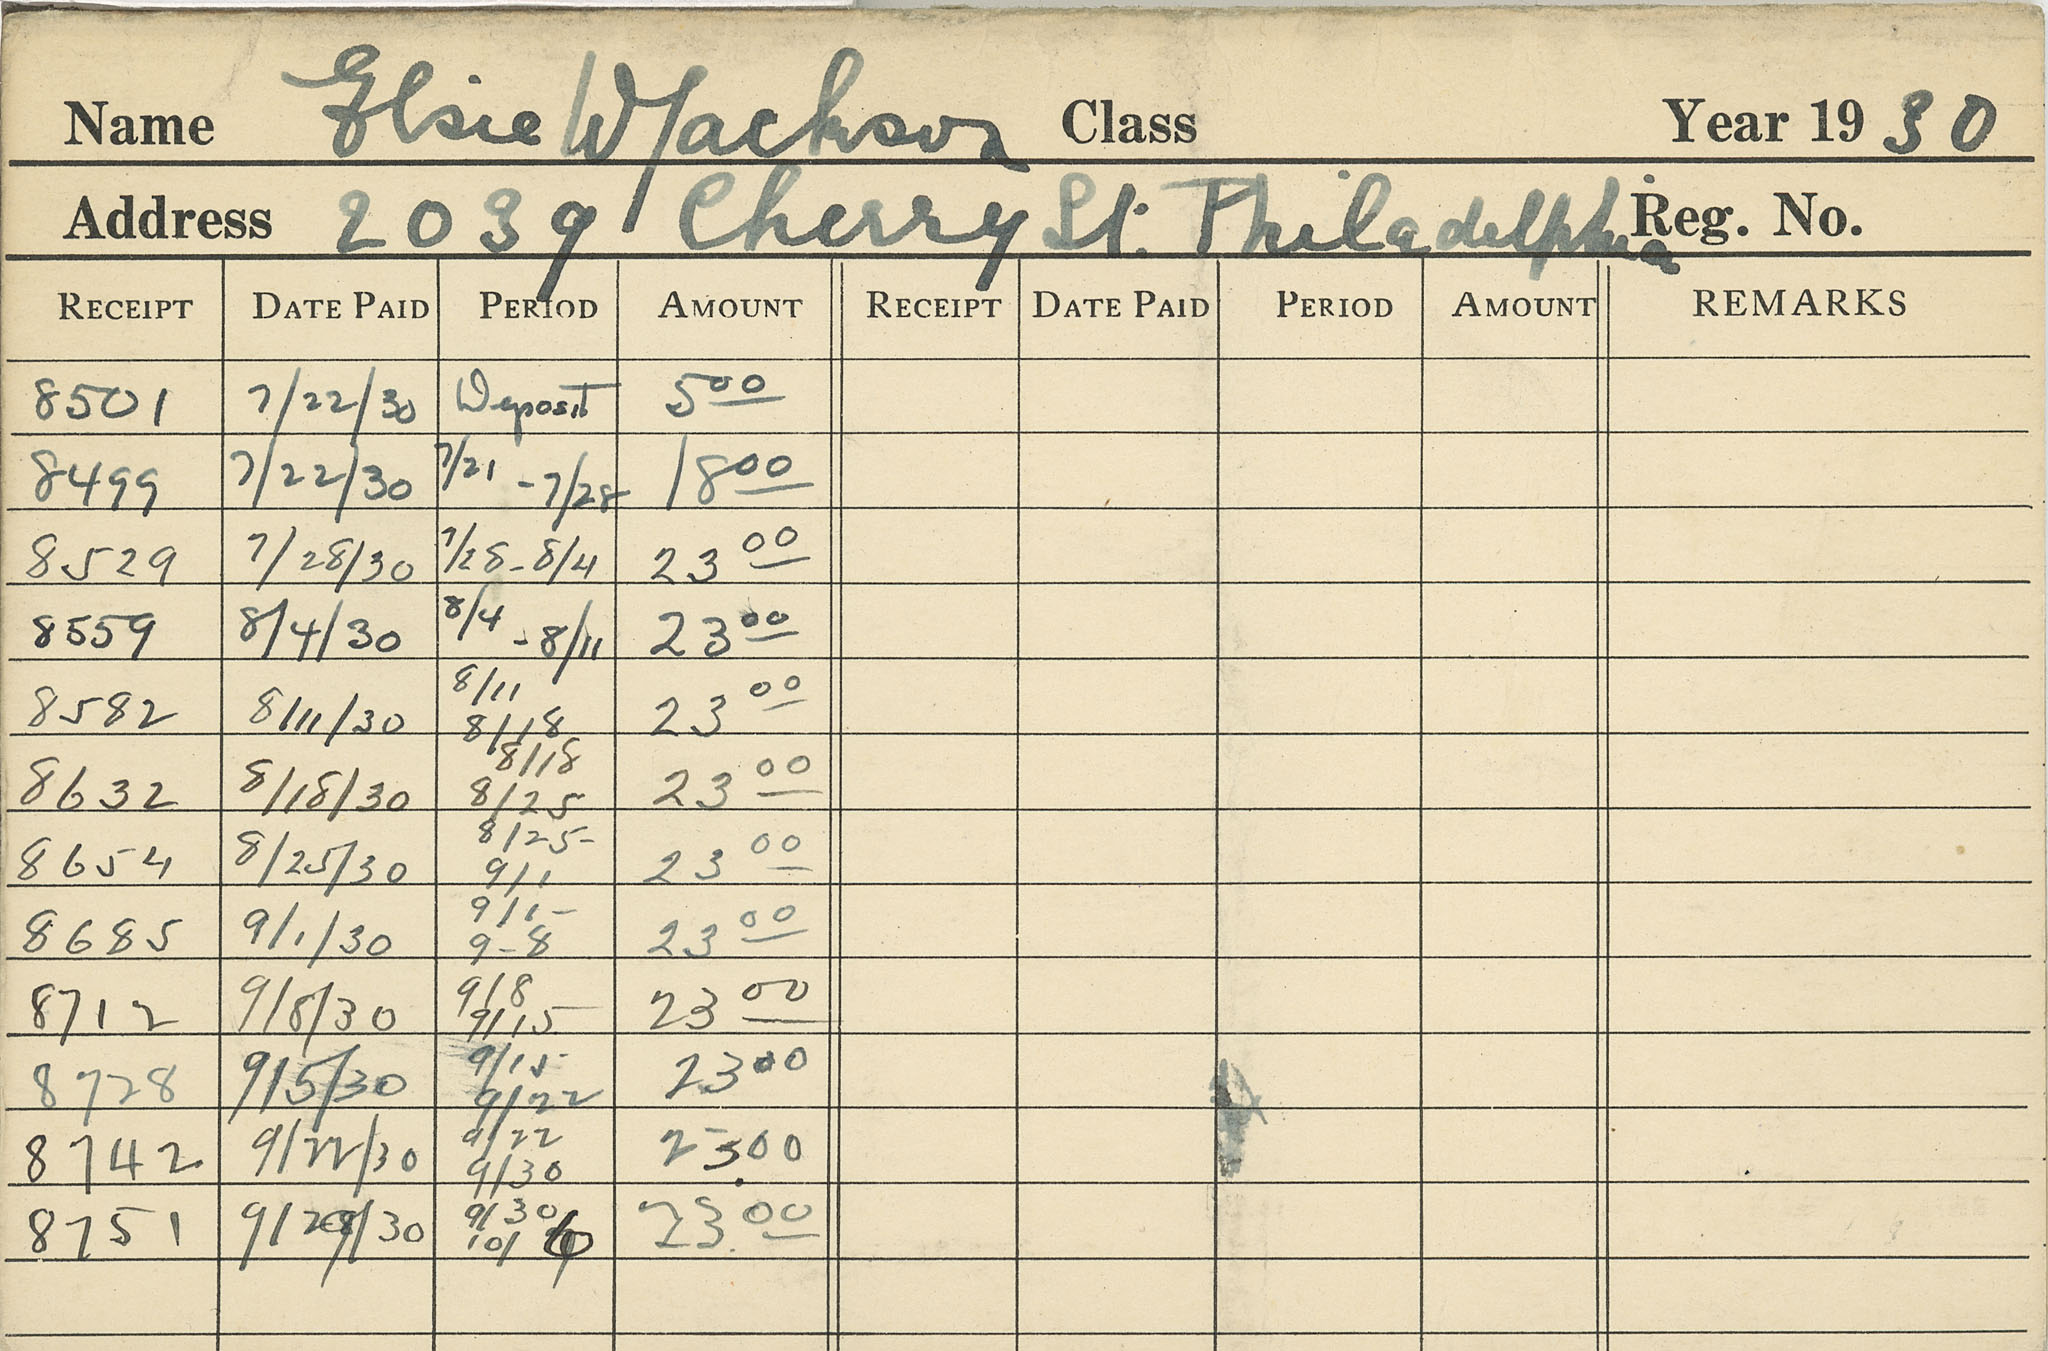 Name Elsie W Jackson Class Year 1930
Address 2039 Cherry St. Philadelphia Reg. No.
RECEIPT DATE PAID PERIOD AMOUNT RECEIPT DATE PAID PERIOD AMOUNT REMARKS
8501 7/22/30 Deposit 5 00
8499 7/22/30 7/21 - 7/28 18 00
8529 7/28/30 7/28 - 8/4 23 00
8559 8/4/30 8/4 - 8/11 23 00
8582 8/11/30 8/11 8/18 23 00
8632 8/18/30 8/18 8/25 23 00
8654 8/25/30 8/25- 9/1 23 00
8685 9/1/30 9/1- 9-8 23 00
8712 9/8/30 9/8 9/15 23 00
8728 9/15/30 9/15- 9/22 23 00
8742 9/22/30 9/22 9/30 23.00
8751 9/ /30 9/30 10/ 23.00